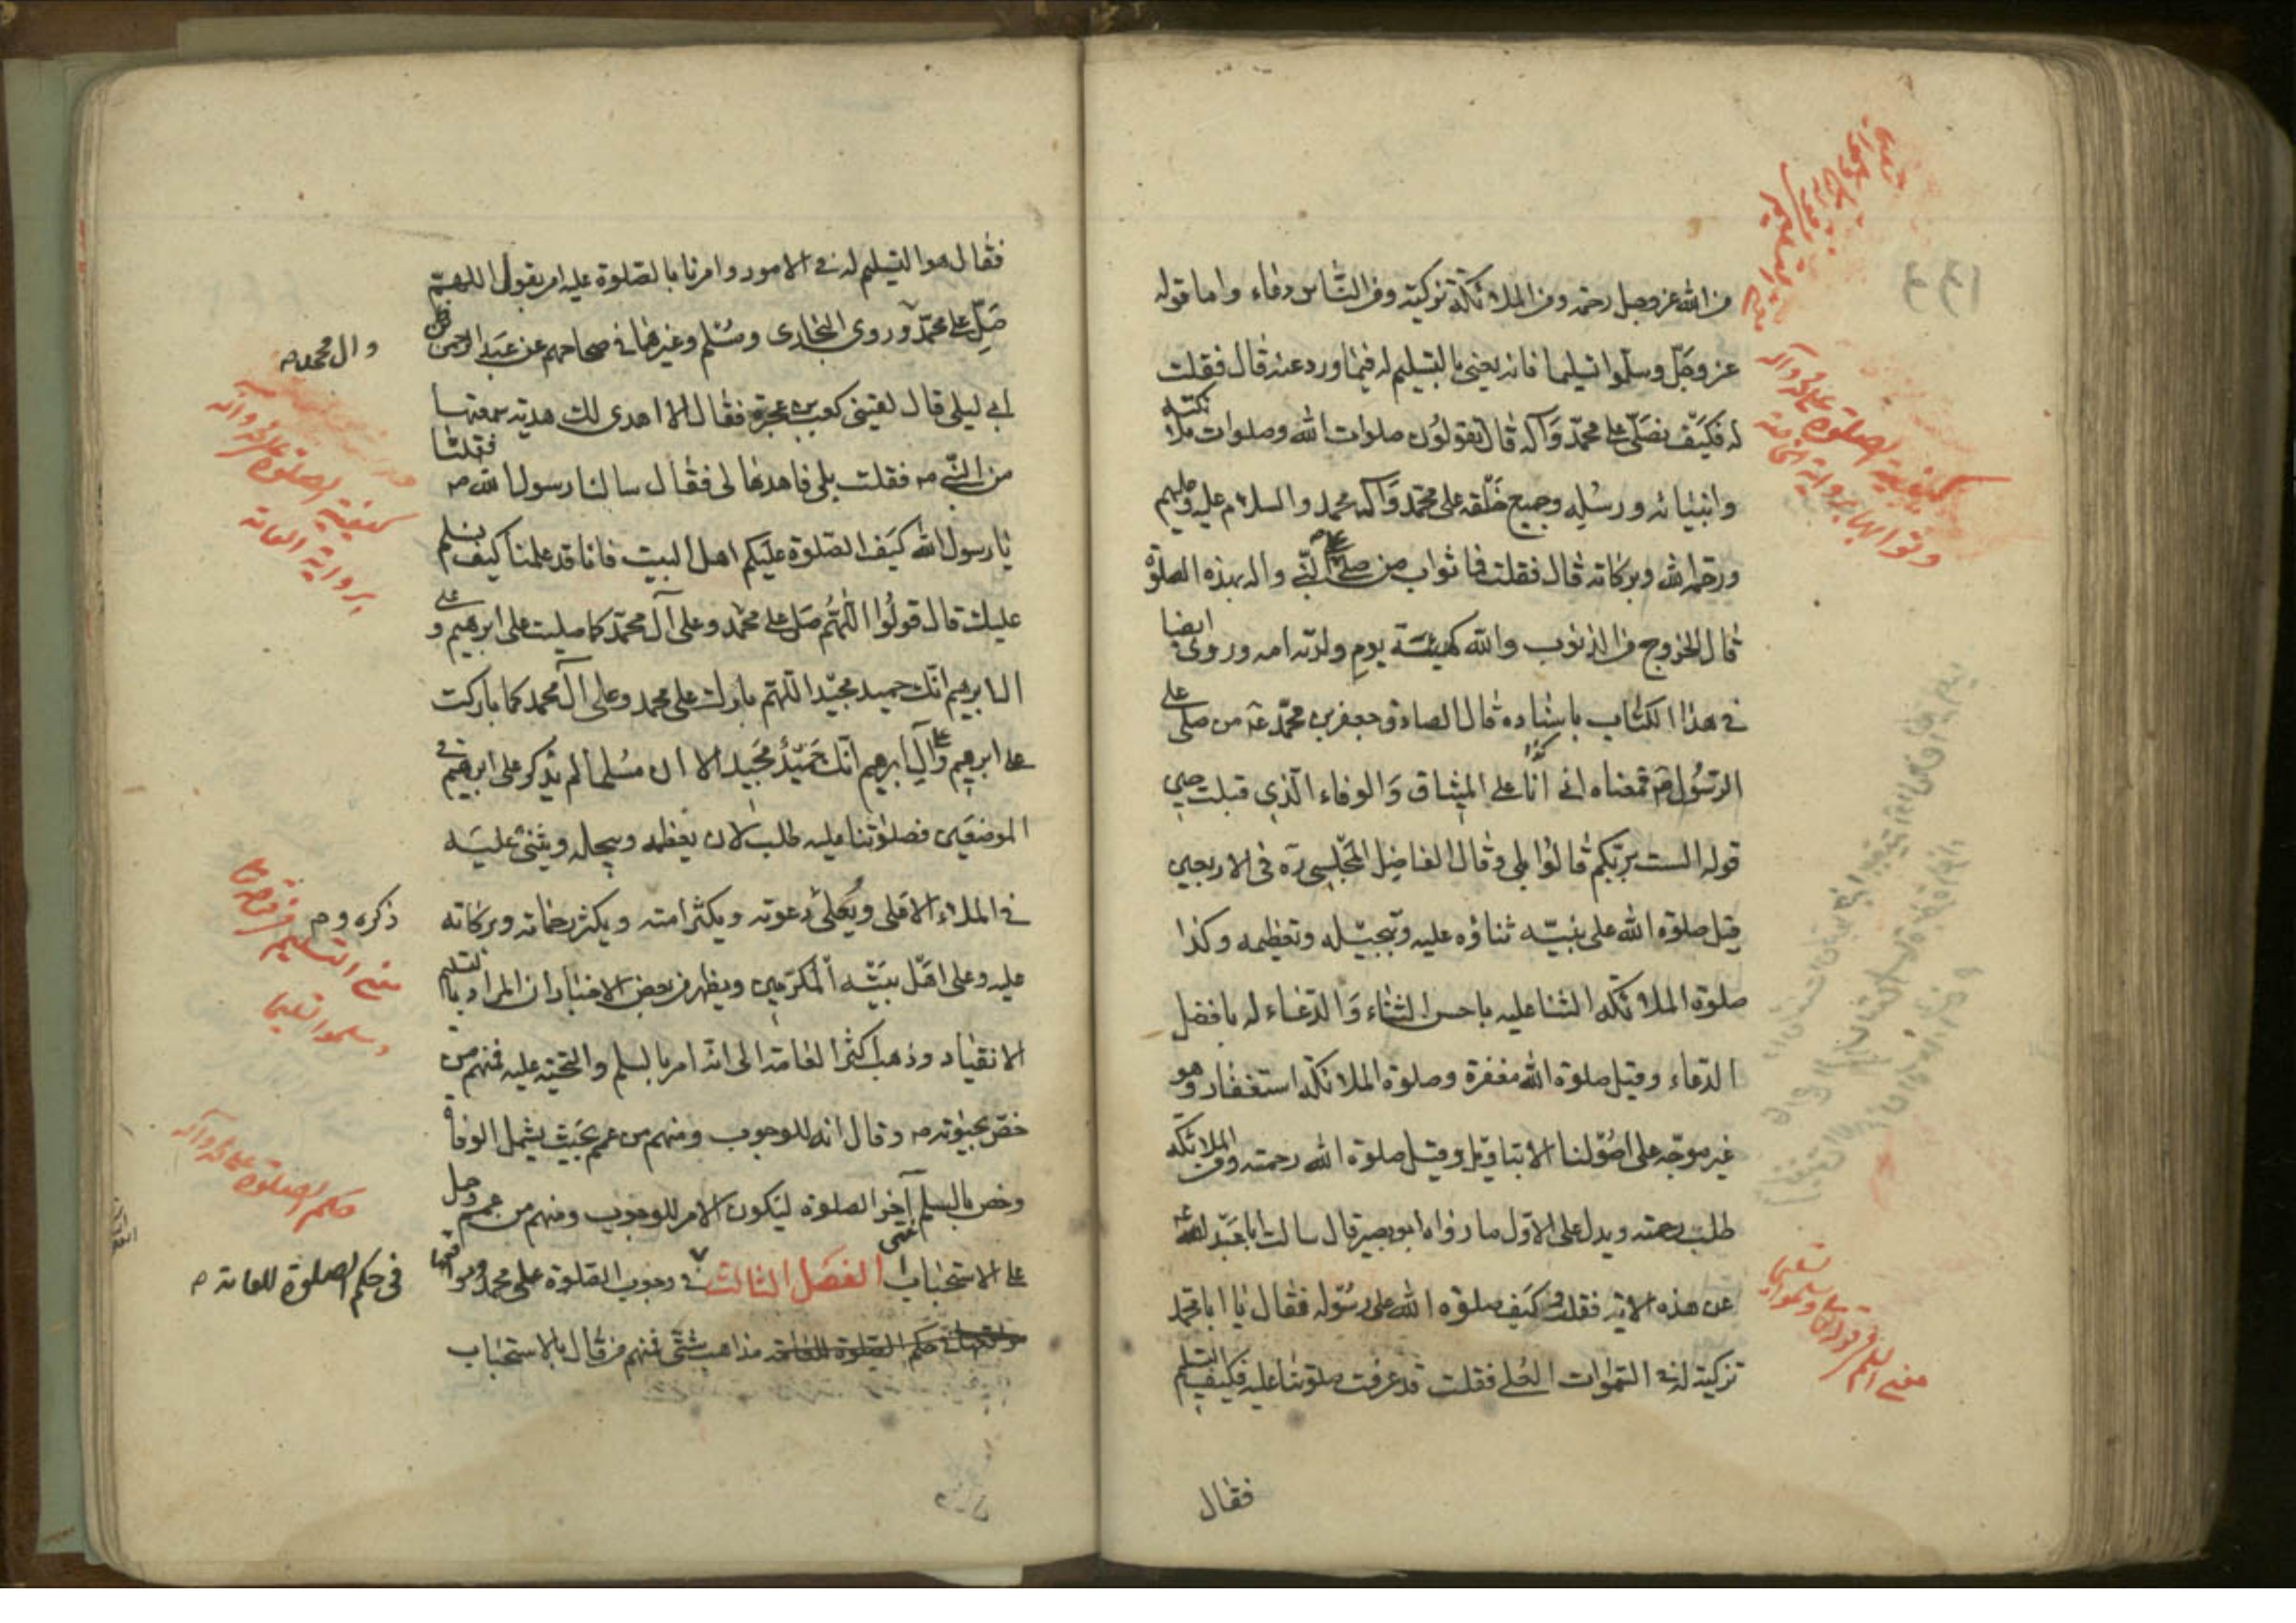 من الله عز وجل رحمة ومن الملائكة تزكية ومن الناس دعاء واما قوله
عز وجل وسلموا تسليما فانه يعنى بالتسليم له فيما ورد عنه قال فقلت
له فكيف نصلى على محمد وآله قال تقولون صلوات الله وصلوات ملائكته
وانبيائه ورسله وجميع خلقه على محمد وآل محمد والسلام عليه وعليهم
ورحمة الله وبركاته قال فقلت فما ثواب من صلى على النبي واله بهذه الصلوة
قال الخروج من الذنوب والله كهيئة يوم ولدته امه وروى ايضا
في هذا الكتاب باسناده قال الصادق جعفر بن محمد ع من صلى على
الرسول ص فمعناه انى انا على الميثاق والوفاء الذي قبلت حين
قوله الست بربكم قالوا بلى وقال الفاضل المجلسى ره فى الاربعين
قيل صلوة الله على نبيه ثناؤه عليه وتبجيله وتعظيمه وكذا
صلوة الملائكة الثنا عليه باحسن الثناء والدعاء له بافضل
الدعاء وقيل صلوة الله مغفرة وصلوة الملائكة استغفار وهو
غير موجه على اصولنا الا بتاويل وقيل صلوة الله رحمته ومن الملائكة
طلب رحمته ويدل على الاول ما رواه ابو بصير قال سالت ابا عبد الله ع
عن هذه الاية فقلت كيف صلوة الله على رسوله فقال يا ابا محمد
تزكيته له في السموات العلى فقلت قد عرفت صلوتنا عليه فكيف التسليم
فقال
كيفية الصلوة على محمد وآله
وثوابها برواية الخاصة
فقال هو التسليم له في الامور وامرنا بالصلوة عليه ان يقول اللهم
صل على محمد وروى البخارى ومسلم وغيرهما في صحاحهم عن عبد الرحمن بن
ابى ليلى قال لقيني كعب بن عجرة فقال الا اهدى لك هدية سمعتها
من النبي ص فقلت بلى فاهدها لى فقال سالنا رسول الله ص فقلنا
يا رسول الله كيف الصلوة عليكم اهل البيت فانا قد علمنا كيف نسلم
عليك قال قولوا اللهم صل على محمد وعلى آل محمد كما صليت على ابرهيم و على
ال ابرهيم انك حميد مجيد اللهم بارك على محمد وعلى آل محمد كما باركت
على ابرهيم و على آل ابرهيم انك حميد مجيد الا ان مسلما لم يذكر على ابرهيم في
الموضعين فصلوتنا عليه طلب لان يعظمه ويبجله ويثنى عليه
في الملاء الاعلى ويعلى دعوته ويكثر امته ويكثر رحماته وبركاته
عليه وعلى اهل بيته المكرمين ويظهر من بعض الاخبار ان المراد بالتسليم
الانقياد وذهب اكثر العامة الى انه امر بالسلم والتحية عليه فمنهم من
خص بحيوته ص وقال انه للوجوب ومنهم من عمم بحيث يشمل الوفاة
وخص بالسلم آخر الصلوة ليكون الامر للوجوب ومنهم من عمم وحمل
على الاستحباب الفصل الثالث في وجوب الصلوة على محمد
حكم الصلوة للعامة مذاهب شتى فمنهم من قال بالاستحباب
وال محمد ص
كيفية الصلوة على محمد وآله
برواية العامة
ذكره و ص
معنى التسليم
وسلموا تسليما
حكم الصلوة على محمد وآله
فى حكم الصلوة للعامة ص